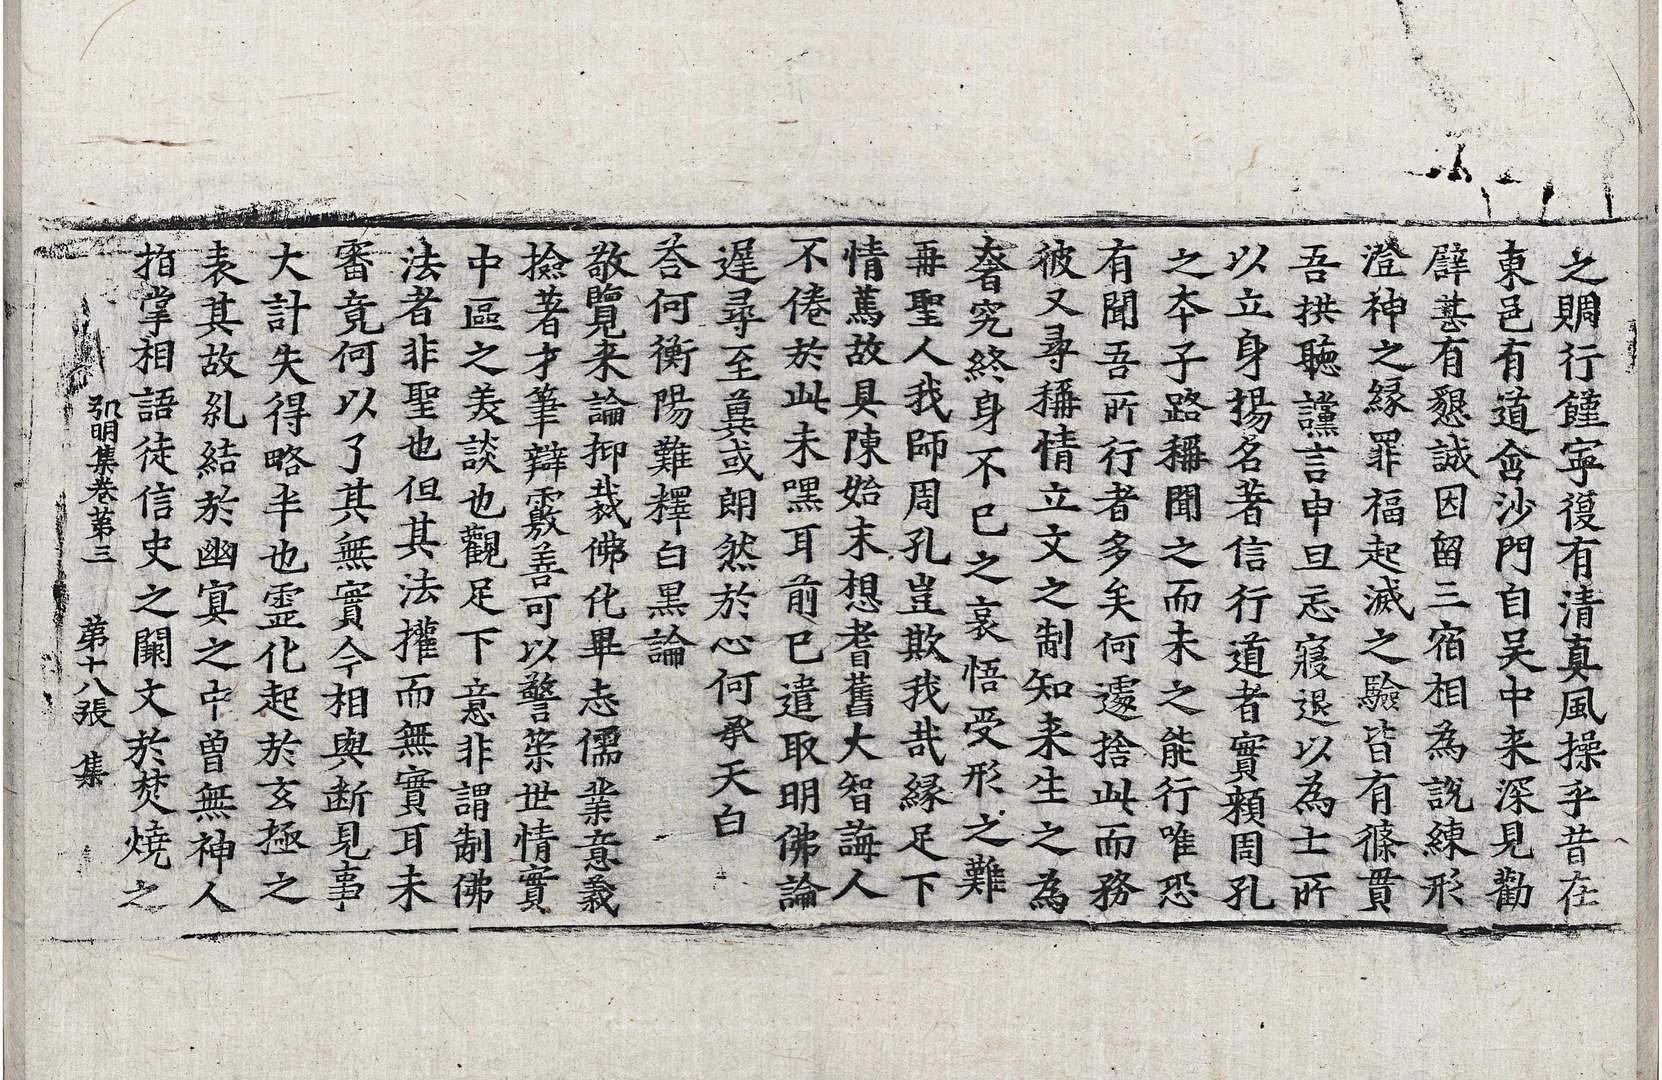 之賙行饉寕復有清真風操乎昔在
東邑有道含沙門自吴中来深見勸
譬甚有懇誠因留三宿相為說練形
澄神之縁罪福起滅之驗皆有條貫
吾拱聽讜言申旦忘寢退以為士所
以立身揚名著信行道者實賴周孔
之夲子路稱聞之而未之能行唯恐
有聞吾所行者多矣何遽捨此而務
彼又尋稱情立文之制知来生之為
奢究終身不已之哀悟受形之難
再聖人我師周孔豈欺我㢤縁足下
情萬故具陳始末想耆舊大智誨人
不倦於此未嘿耳前已遣取明佛論
遲尋至冀或朗然於心何承天白
荅何衡陽難釋白黒論
敬覽来論抑裁佛化畢志儒業意義
撿著才筆辯覈善可以警䇿世情實
中區之羙談也觀足下意非謂制佛
法者非聖也但其法權而無實耳未
審竟何以了其無實今相與断見事
大計失得略半也霊化起於玄極之
表其故乱結於幽㝠之中曽無神人
指掌相語徒信史之闕文於焚燒之
弘明集卷苐三 苐十八張 集